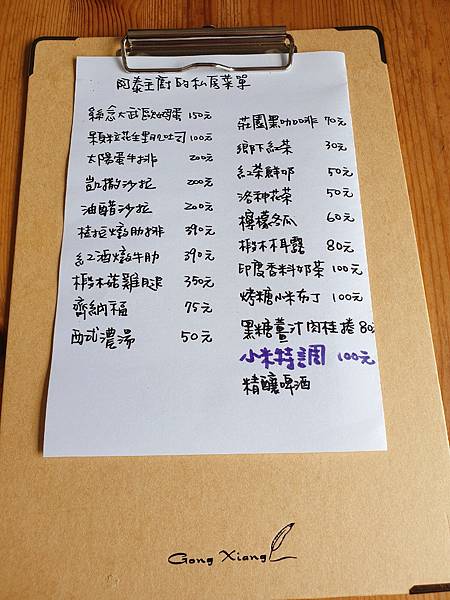 阿泰主廚的私房菜單
綜念大武歐姆蛋 150元
顆粒花生墨西吐司 100元
太陽蛋牛排 200元
凱撒沙拉 200元
油醋沙拉 200元
桂拉燉肋排 390元
紅酒燉牛肋 390元
椴木菇雞腿 350元
齊納福 75元
西式濃湯 50元
莊園黑咖啡 70元
鄉下紅茶 30元
紅茶鮮奶 50元
洛神花茶 50元
檸檬冬瓜 60元
椴木木耳露 80元
印度香料奶茶 100元
烤糖小米布丁 100元
黑糖薑汁肉桂捲 80
小米特調 100元
精釀啤酒
Gong Xiang